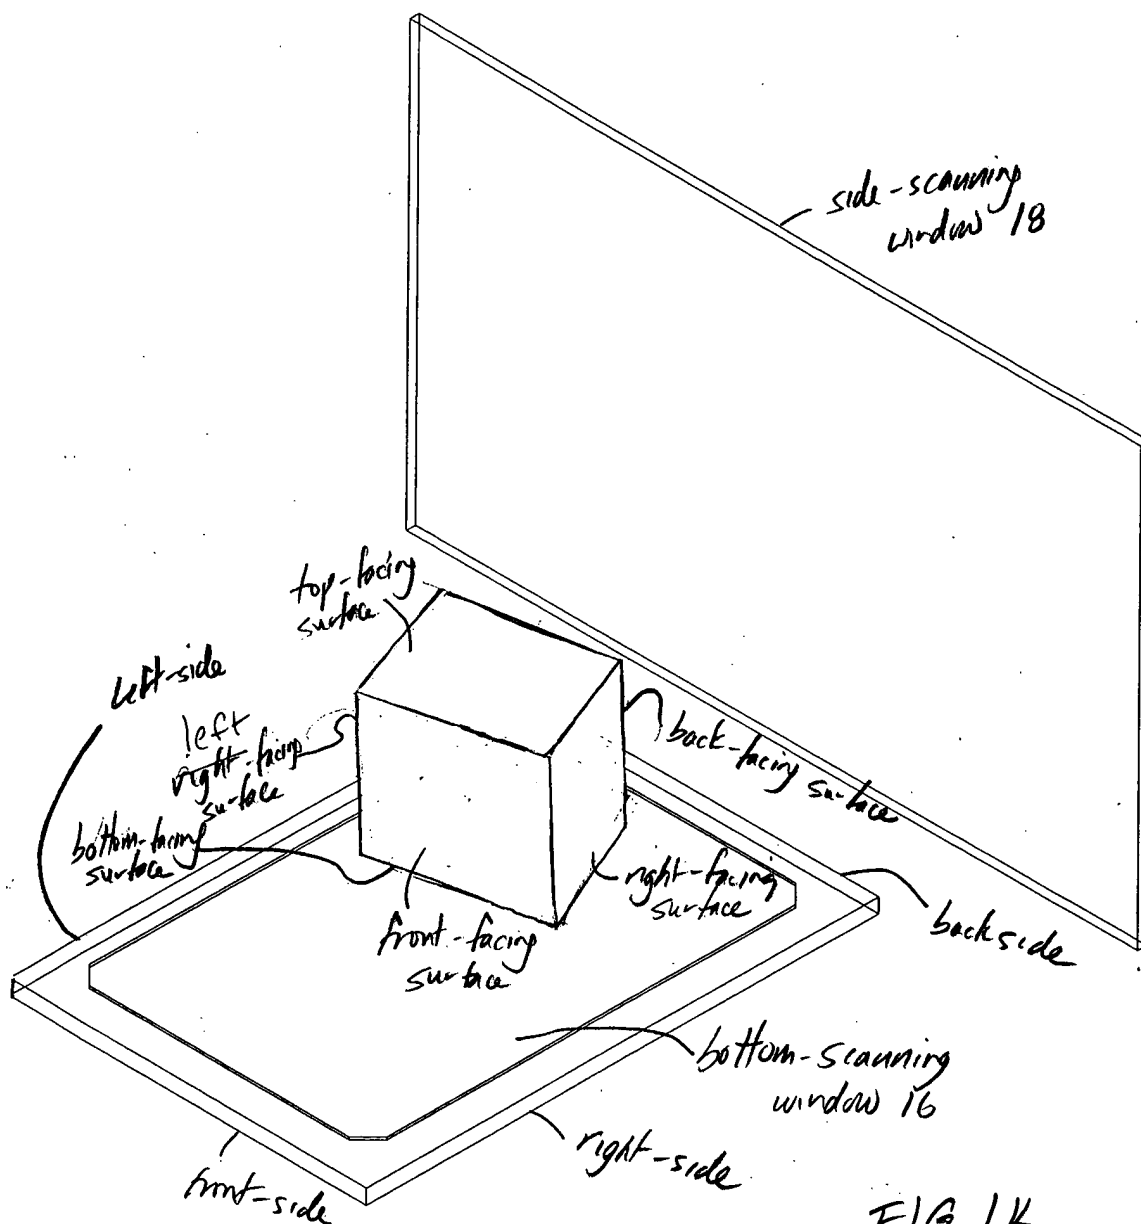 side-scanning
window 18
top-facing
surface
left-side
left
right-facing
surface
back-facing surface
bottom-facing
surface
right-facing
surface
front-facing
surface
backside
bottom-scanning
window 16
right-side
front-side
FIG. 1K